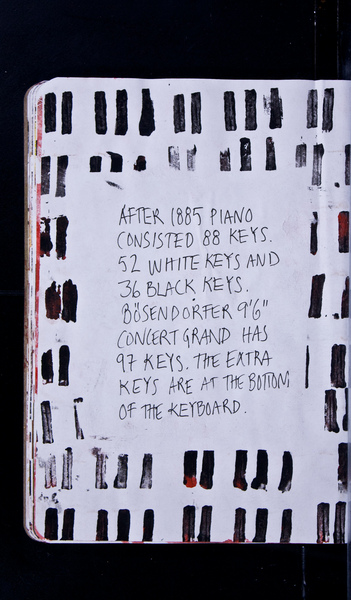 AFTER 1885 PIANO
CONSISTED 88 KEYS.
52 WHITE KEYS AND
36 BLACK KEYS.
BÖSENDORFER 9'6"
CONCERT GRAND HAS
97 KEYS. THE EXTRA
KEYS ARE AT THE BOTTOM
OF THE KEYBOARD.